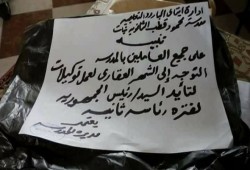 ادارة ايتاى البارود التعليمية
مدرسة محمود قطب الثانوية بنات
تنبيه
على جميع العاملين بالمدرسة
التوجه إلى الشهر العقارى لعمل توكيلات
لتأيد السيد / رئيس الجمهورية
لفترة رئاسة ثانية
يعتمد